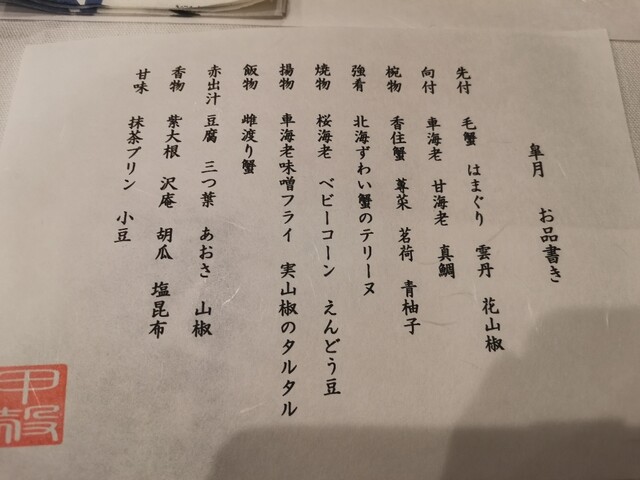 皐月　お品書き
先付　毛蟹　はまぐり　雲丹　花山椒
向付　車海老　甘海老　真鯛
椀物　香住蟹　蓴菜　茗荷　青柚子
強肴　北海ずわい蟹のテリーヌ
焼物　桜海老　ベビーコーン　えんどう豆
揚物　車海老味噌フライ　実山椒のタルタル
飯物　雌渡り蟹
赤出汁　豆腐　三つ葉　あおさ　山椒
香物　紫大根　沢庵　胡瓜　塩昆布
甘味　抹茶プリン　小豆
甲殻